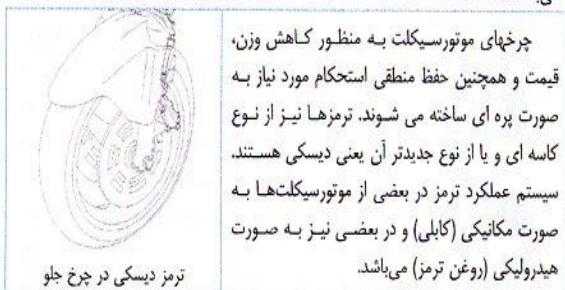 چرخهای موتورسیکلت به منظور کاهش وزن،
قیمت و همچنین حفظ منطقی استحکام مورد نیاز به
صورت پره ای ساخته می شوند. ترمزها نیز از نوع
کاسه ای و یا از نوع جدیدتر آن یعنی دیسکی هستند.
سیستم عملکرد ترمز در بعضی از موتورسیکلت‌ها به
صورت مکانیکی (کابلی) و در بعضی نیز به صورت
هیدرولیکی (روغن ترمز) می‌باشد.
ترمز دیسکی در چرخ جلو